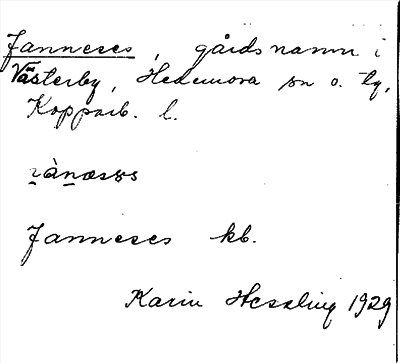 Janneses, gårdsnamn i
Västerby, Hedemora sn o. tg,
Kopparb. l.
Janneses kb.
Karin Hesseling 1929